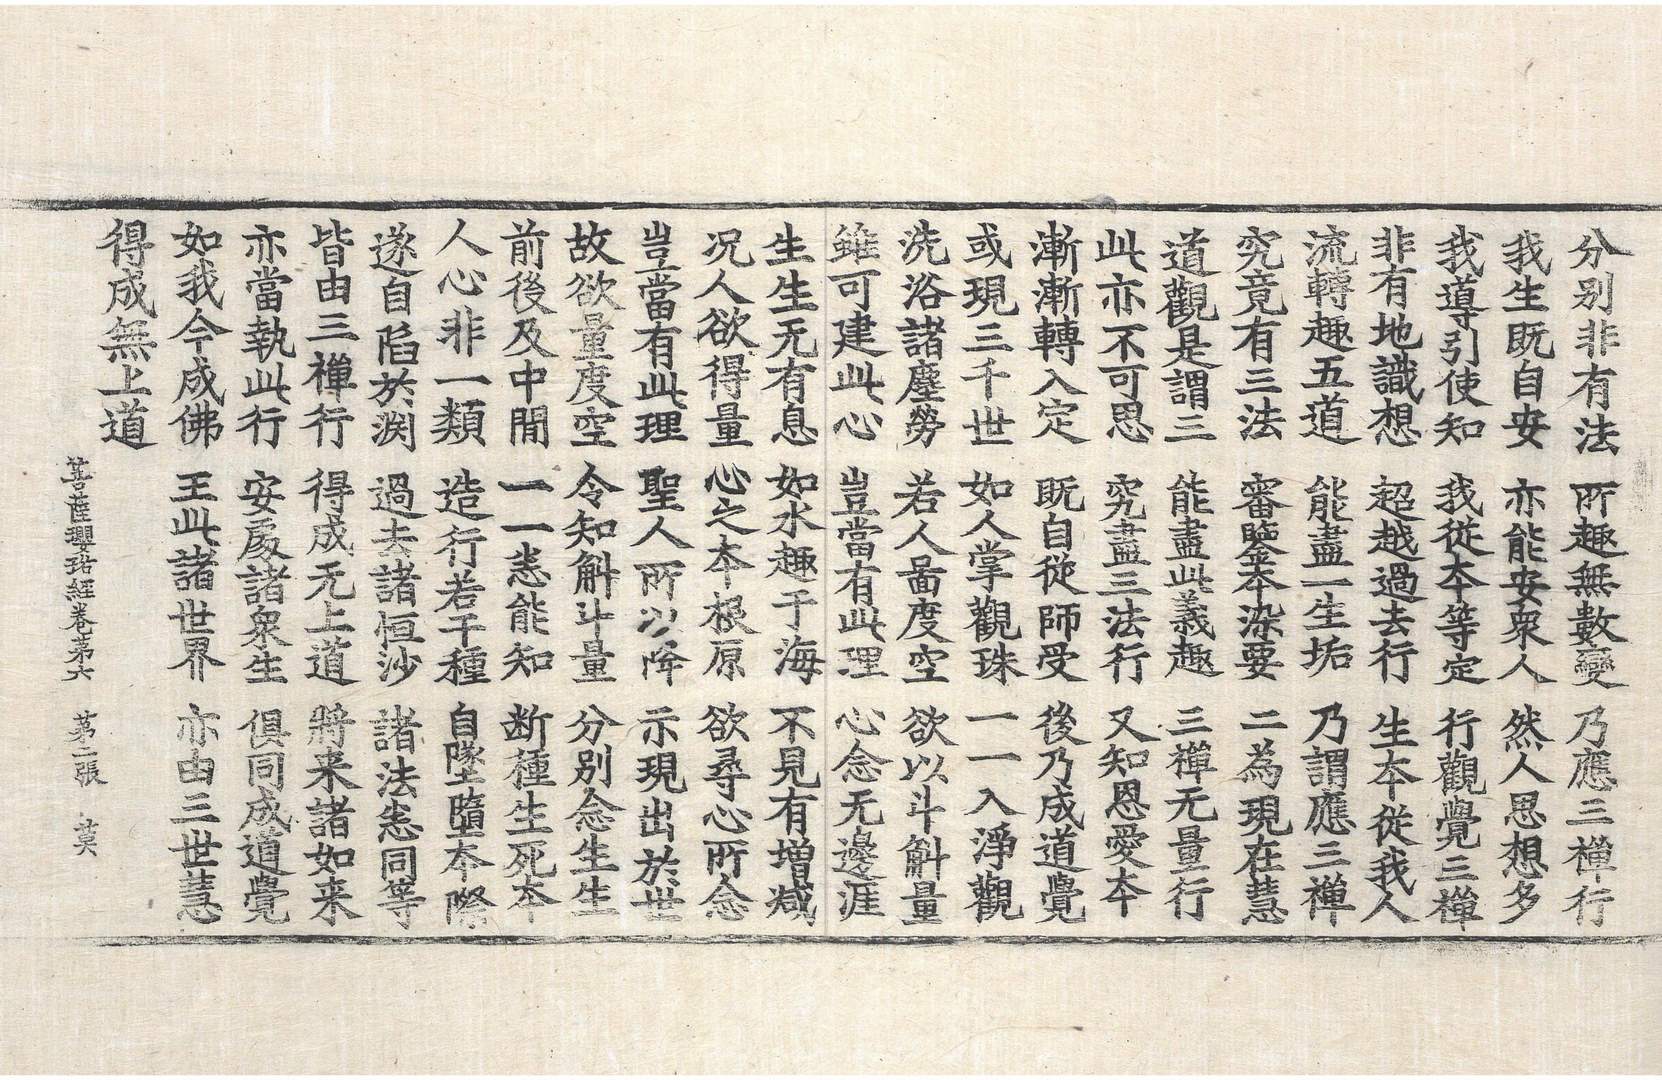 分别非有法　所趣無數變　乃應三禪行
我生既自安　亦能安衆人　然人思想多
我導引使知　我從本等定　行觀覺三禪
非有地識想　超越過去行　生本從我人
流轉趣五道　能盡一生垢　乃謂應三禪
究竟有三法　審鑒本染要　二為現在慧
道觀是謂三　能盡此義趣　三禪无量行
此亦不可思　究盡三法行　又知恩愛本
漸漸轉入定　既自從師受　後乃成道覺
或現三千世　如人掌觀珠　一一入淨觀
洗浴諸塵勞　若人啚度空　欲以斗斛量
雖可建此心　豈當有此理　心念无邊涯
生生无有息　如水趣于海　不見有增減
况人欲得量　心之本根原　欲尋心所念
豈當有此理　聖人所以降　示現出於世
故欲量度空　令知斛斗量　分別念生生
前後及中間　一一悉能知　断種生死本
人心非一類　造行若干種　自墜墮本際
遂自陷於渕　過去諸恒沙　諸法悉同等
皆由三禪行　得成无上道　將来諸如来
亦當執此行　安處諸衆生　俱同成道覺
如我今成佛　王此諸世界　亦由三世慧
得成無上道
菩薩瓔珞經卷第六　第二張　莫